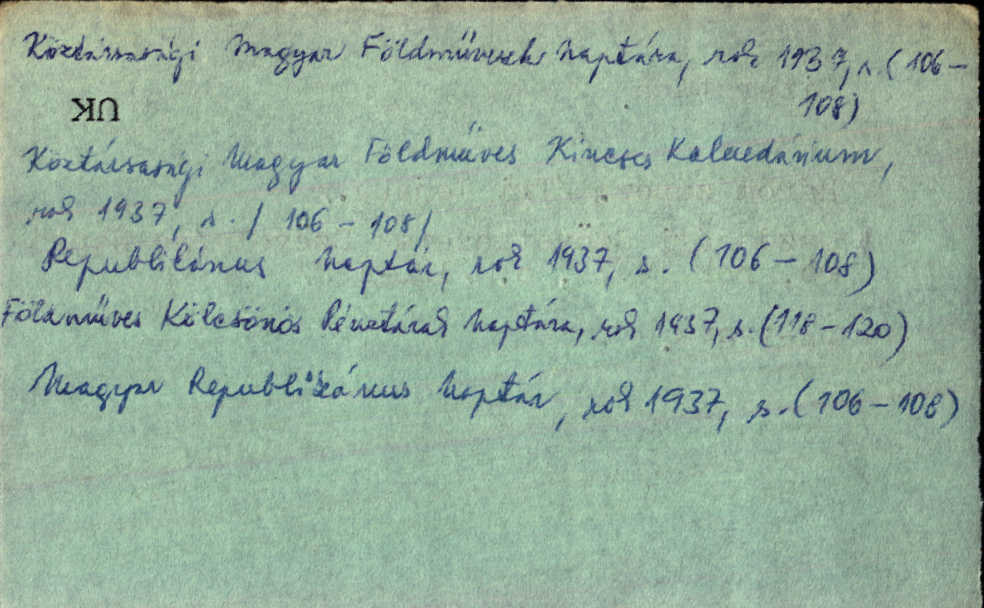 Köztársasági Magyar Földművesek Naptára, rok 1937, s. (106-
108)
UK
Köztársasági Magyar Földműves Kincses Kalendárium,
rok 1937, s. / 106 - 108/
Republikánus Naptár, rok 1937, s. (106 - 108)
Földműves Kölcsönös Pénztárak Naptára, rok 1937, s. (118-120)
Magyar Republikánus Naptár, rok 1937, s. (106-108)